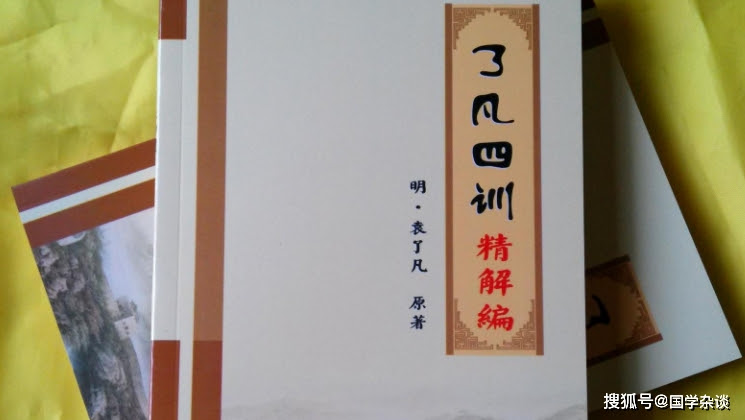 了凡四训
精解编
明·袁了凡 原著
搜狐号@国学杂谈